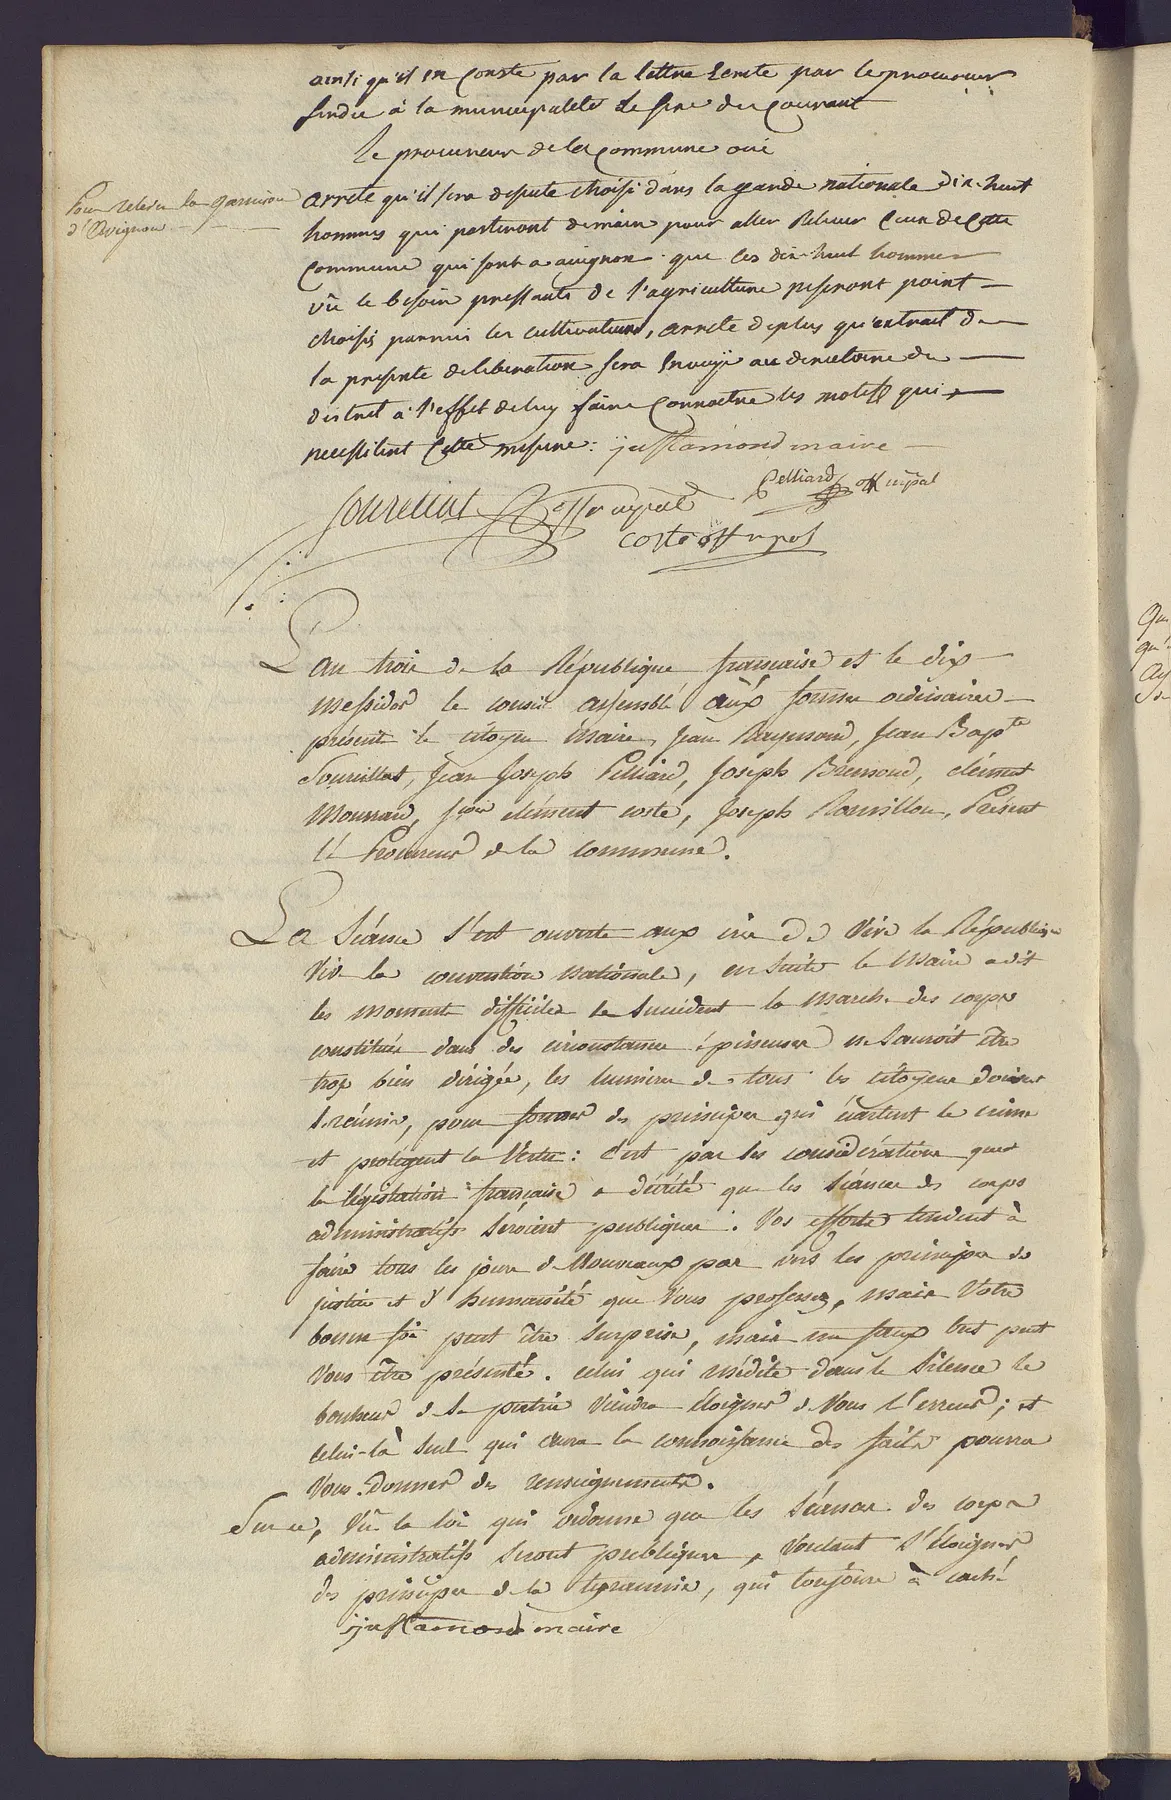 ainsi qu'il en Conste par la lettre Ecrite par le procureur
sindic à la municipalité le du Courant
Le procureur de la Commune oui
Pour relever la garnison
d'Avignon
arrete qu'il sera depute choisi dans la garde nationale Dix-huit
hommes qui partiront demain pour aller Relever Ceux de Cette
Commune qui sont a avignon que les dix-huit hommes
vû le besoin pressants de l'agriculture ne seront point
choisis parmi les cultivateurs, arrete deplus qu'extrait de
la presente deliberation sera Envoyé au directoire du
district à l'effet de luy faire Connoitre les motifs qui
necessitent Cette mesure : justamond maire
Pelliard off mpal
Soureillat off mupal
coste off mpal
L'an trois de la République française et le dix
messidor le conseil assemblé aux formes ordinaires
présent le citoyen Maire, Jean Raymond, Jean Bapte
Soureillat, Jean Joseph Pelliard, Joseph Bremond, clément
Mourrard, clément coste, Joseph Roumillon, Présent
le Procureur de la commune.
La Séance s'est ouverte aux cris de Vive la République
Vive la convention Nationale, en suite le Maire a dit
les moments difficiles se succèdent la marche des corps
constitués dans des circonstances épineuses ne sauroit être
trop bien dirigée, les lumières de tous les citoyens doivent
se réunir, pour former des principes qui écartent le crime
et protègent la Vertu : c'est par ses considérations que
la législation française a décrété que les séances des corps
administratifs seroient publiques. Vos efforts tendent à
faire tous les jours de Nouveaux pas vers les principes de
justice et d'humanité que Vous professez, mais Votre
bonne foi peut être surprise, mais un faux but peut
Vous être présenté. celui qui médite dans le silence le
bonheur de sa patrie viendra éloigner de Vous l'erreur ; et
celui-là seul qui aura la connoissance des faits pourra
Vous donner des renseignements.
Sur ce, Vû la loi qui ordonne que les séances des corps
administratifs seront publiques, Voulant s'éloigner
des principes de la tyrannie, qui toujours à caché
justamond maire